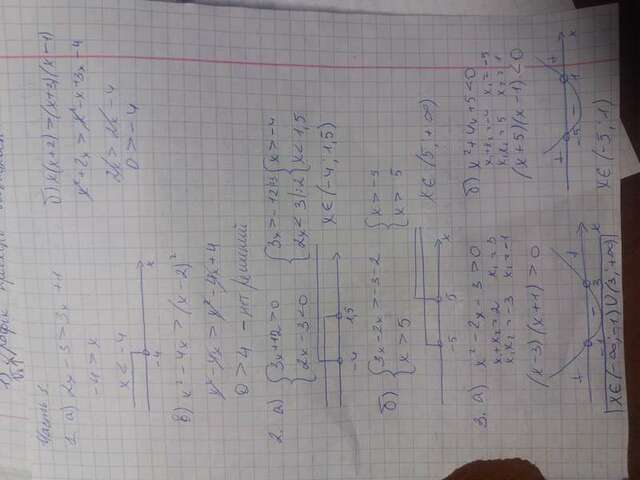 1) Графік
Часть 1.
1. а) 2x - 3 > 3x + 1
-4 > x
x < -4
-4 x
б) x(x+2) > (x+3)(x-1)
x² + 2x > x² - x + 3x - 4
2x > 2x - 4
0 > -4
в) x² - 4x > (x-2)²
x² - 4x > x² - 4x + 4
0 > 4 - нет решений
2. а) { 3x+12 > 0 { 3x > -12 |:3 { x > -4
2x - 3 < 0 2x < 3 |:2 x < 1,5
-4 1,5 x ∈ (-4; 1,5)
б) { 3x - 2x > -3 - 2 { x > -5
x > 5 x > 5
-5 5 x x ∈ (5; +∞)
3. а) x² - 2x - 3 > 0
x₁ + x₂ = 2 x₁ = 3
x₁x₂ = -3 x₂ = -1
(x-3)(x+1) > 0
+ - +
-1 3 x
x ∈ (-∞; -1) ∪ (3; +∞)
б) x² + 4x + 5 < 0
x₁ + x₂ = -4 x₁ = -5
x₁x₂ = 5 x₂ = 1
(x+5)(x-1) < 0
+ - +
-5 1 x
x ∈ (-5; 1)